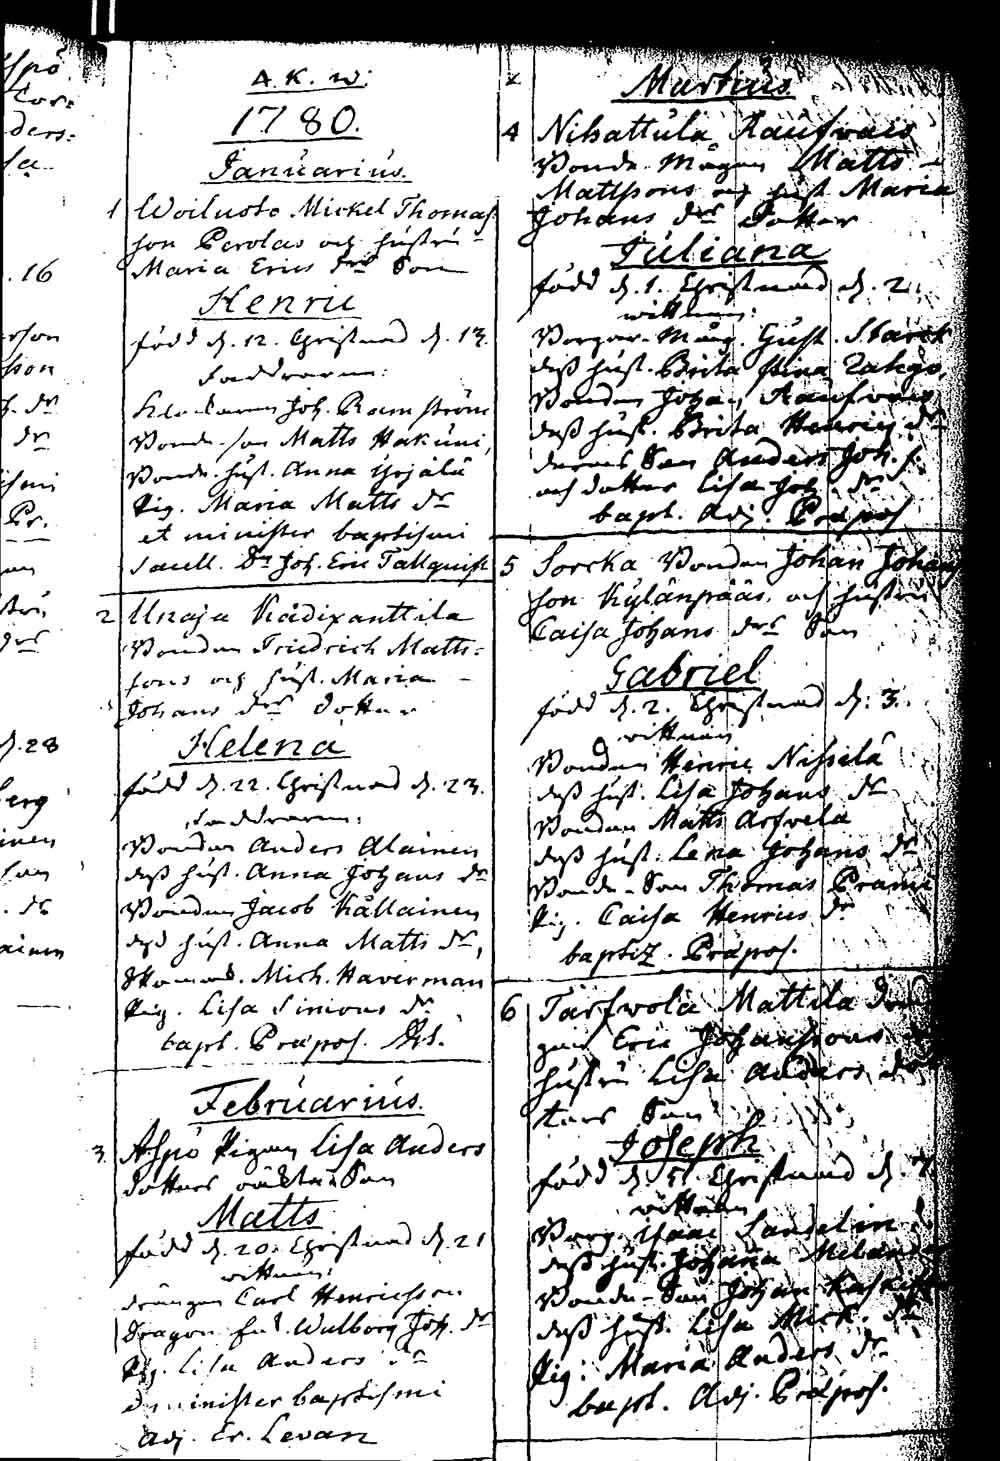 A. K. w:
1780.
Januarius.
1 Woiluoto Mickel Thomas
son Perolas och hustru
Maria Erics drs Son
Henric
född d. 12. Christnad d. 13.
Faddrarne:
Klockaren Joh. Ramström
Bonde-son Matts Hakuni
Bonde-hust. Anna Yrjälä
Pig. Maria Matts dr
et minister baptismi
Sacell. Dn Joh. Eric Tallquist
2 Unaja Kädixanttila
Bonden Friedrich Matts-
sons och hust. Maria
Johans drs dotter
Helena
född d. 22. Christnad d. 23.
Faddrarne:
Bonden Anders Alainen
dess hust. Anna Johans dr
Bonden Jacob Kållainen
dess hust. Anna Matts dr,
Mich. Haverman
Pig. Lisa Simons dr
bapt. Præpos.
Februarius.
3 Aspö Pigan Lisa Anders
dotters oäkta Son
Matts
född d. 20. Christnad d. 21
wittnen:
drängen Carl Henricsson
Dragon Wulborg Joh. dr
Pig. Lisa Anders dr
minister baptismi
Adj. Er. Levan
Martius.
4 Nihattula Raufwais
Bonde Mågen Matts
Mattssons och hust Maria
Johans drs Dotter
Juliana
född d. 1. Christnad d. 2.
wittnen:
Borgar-Måg. Gust. Starck
dess hust. Brita Stina
Bonden Johan Raufwais
dess hust. Brita Henrics dr
deras Son Anders Joh. s.
och dotter Lisa Joh. dr
bapt. Adj. Præpos
5 Sorcka Bonden Johan Johans
son Kylänpääs, och hustru
Caisa Johans drs Son
Gabriel
född d. 2. Christnad d. 3.
wittnen
Bonden Henric Nissilä
dess hust. Lisa Johans dr
Bonden Matts Arfvela
dess hust. Lena Johans dr
Bonde-Son Thomas Prami
Pig. Caisa Henrics dr
baptiz. Præpos.
6 Tarfwola Mattila
Eric Johanssons
hustru Lisa Anders dot
ters Son
Joseph
född d. 5. Christnad d. 7
wittnen
Borg. Isaac Sandelin
dess hust. Johanna Melander
Bonde-Son Johan
dess hust. Lisa Mick. dr
Pig: Maria Anders dr
bapt. Adj. Præpos.
. 16
rson
sson
dr
Pr.
d. 28
berg
inen
son
. dr
ainen